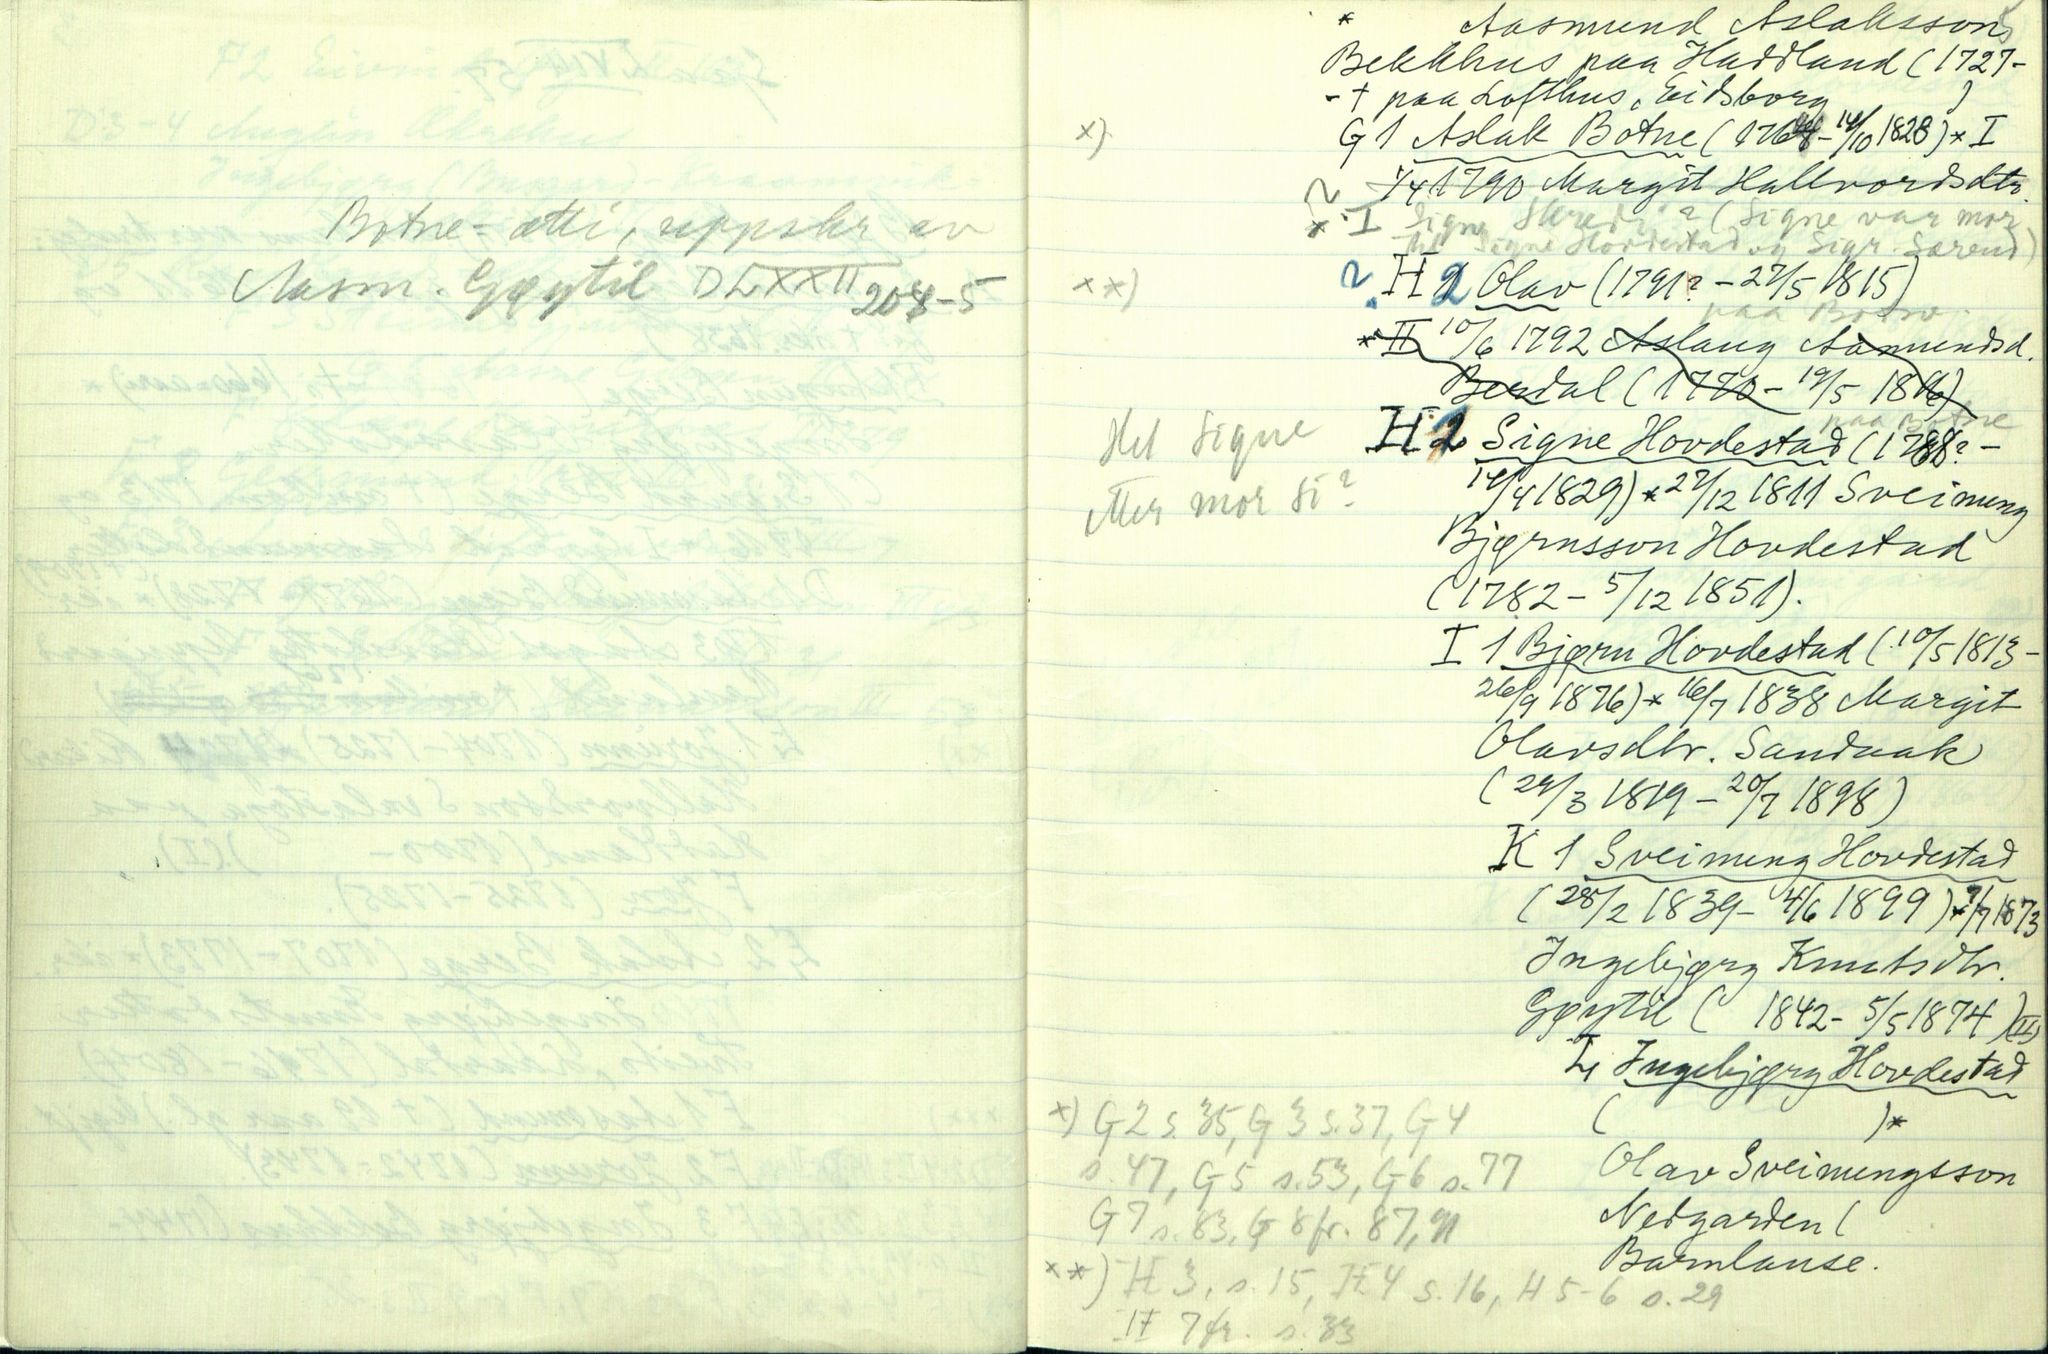 Botne-ætti, uppskr av
Aasm. Gøytil DLXXII 204-5
* Aasmund Aslaksson
Bekkhus paa Haddland (1727-
-† paa Lofthus, Eidsborg )
x) G 1 Aslak Botne (1764-14/10 1828) * I
1790 Margit Hallvordsdtr.
? * I Signe Skredi? (Signe var mor
til Signe Hovdestad og Sigr. Sørend)
xx) ? H 2 Olav (1791? - 27/5 1815)
paa Botne.
* II 10/6 1792 Aslaug Aamundsd.
Berdal (1770 - 19/5 1846)
paa Botne
Het Signe H 2 Signe Hovdestad (1788? -
etter mor si? 14/4 1829) * 27/12 1811 Sveinung
Bjørnsson Hovdestad
(1782 - 5/12 1851).
I 1 Bjørn Hovdestad (10/5 1813-
26/9 1876) * 16/7 1838 Margit
Olavsdtr. Sandaak
(24/3 1819 - 20/7 1898)
K 1 Sveinung Hovdestad
(28/2 1839 - 4/6 1899) * 7/7 1873
Ingebjørg Knutsdtr.
Gøytil ( 1842 - 5/5 1874 )(II)
L Ingebjørg Hovdestad
( )*
Olav Sveinungsson
Nedgarden (
Barnlause.
x) G 2 s. 35, G 3 s. 37, G 4
s. 47, G 5 s. 53, G 6 s. 77
G 7 s. 83, G 8 fr. 87, 91
xx) H 3, s. 15, H 4 s. 16, H 5-6 s. 29
H 7 fr. s. 33